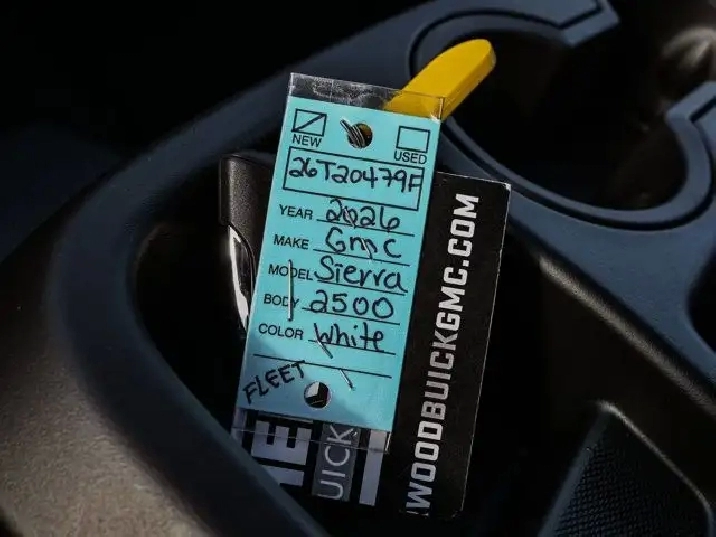 NEW
USED
26T20479F
YEAR 2026
MAKE Gmc
MODEL Sierra
BODY 2500
COLOR White
FLEET
UICK
WOODBUICKGMC.COM